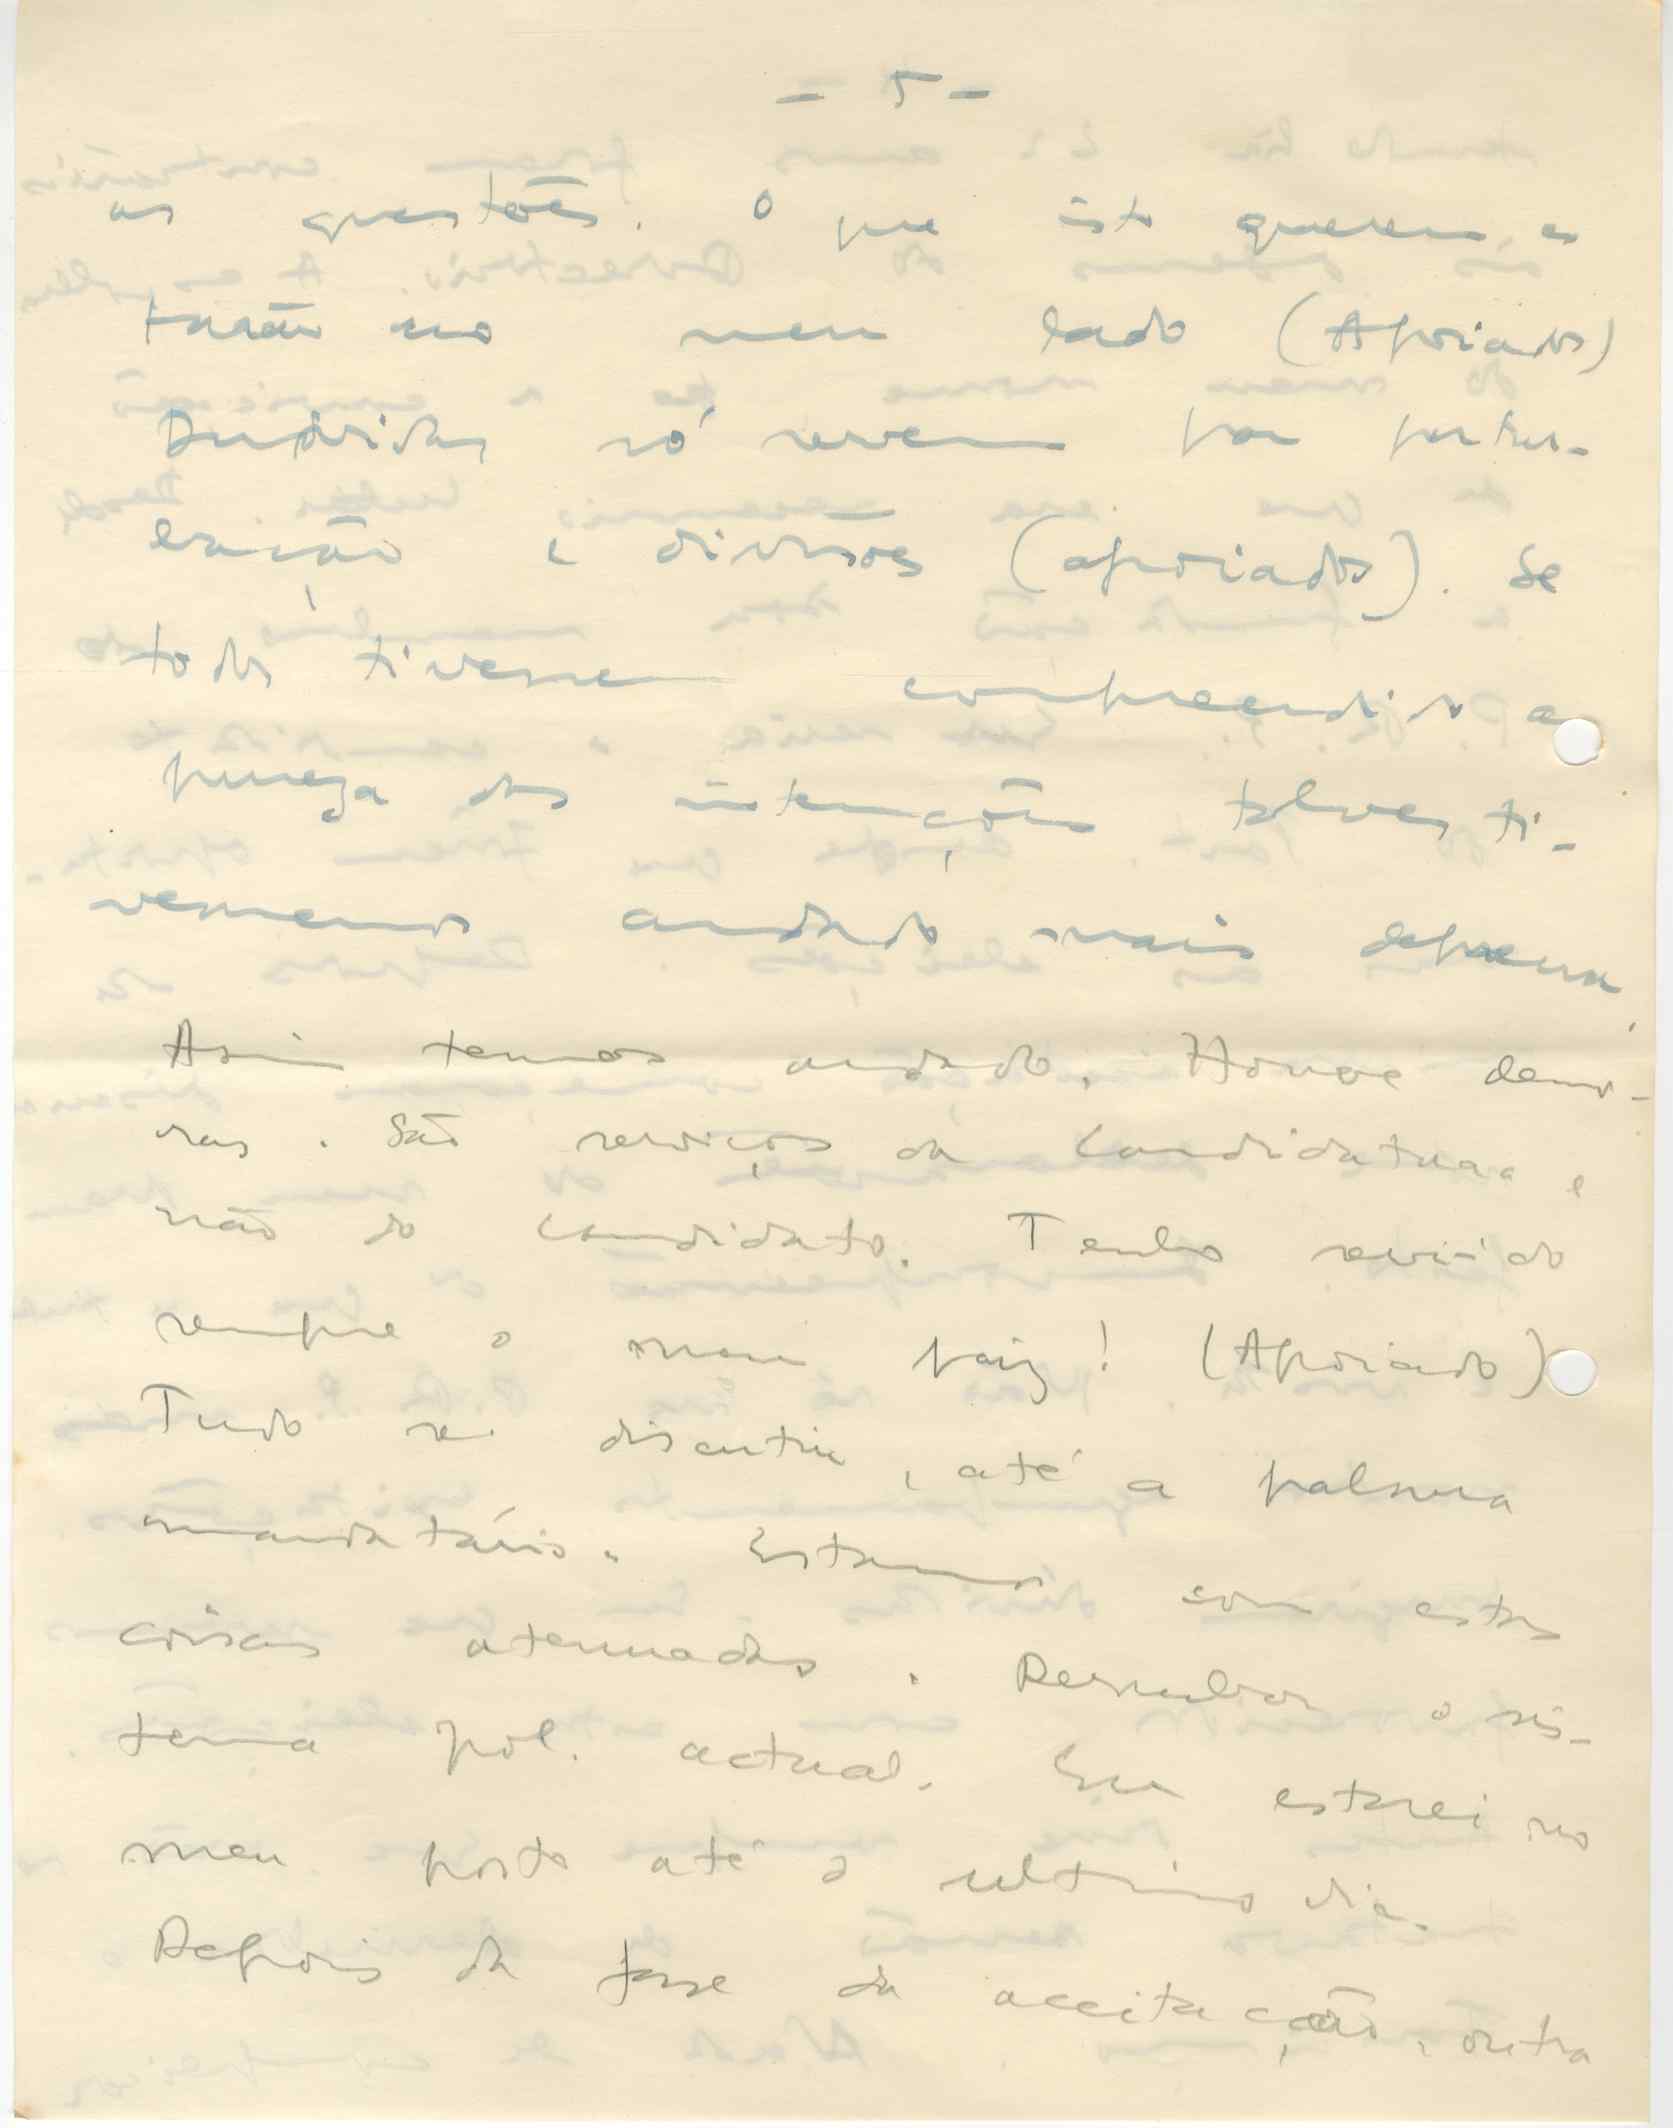 - 5 -
as questões. O que isto querem, es
tarão no meu lado (Apoiados)
Duvidas só servem para pertur-
bação e divisões (apoiados). Se
todos tivessem compreendido a
pureza das intenções talvez ti-
vessemos andado mais depressa,
Assim temos andado. Houve demo-
ras. São serviços da Candidatura e
não do candidato. Tenho servido
sempre o meu paiz! (Apoiado)
Tudo se discutiu, até a palavra
mandatário. Estamos com estas
coisas atenuadas. Derrubar o sis-
tema pol. actual. Eu estarei no
meu posto até o ultimo dia.
Depois da fase da aceitação, outra